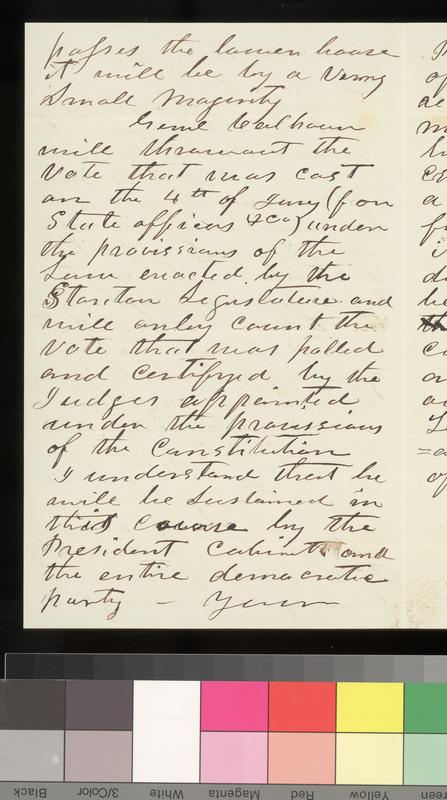 passes the lower house
it will be by a verry
small magority
Genl Calhoun
will thrwout the
vote that was cast
on the 4th of Jany (for
State officers &ca) under
the provissions of the
Law enacted by the
Stanton Legislature and
will onley count the
vote that was polled
and certifyed by the
Judges appointed
under the provissions
of the Constitution
I understand that he
will be sustained in
this course by the
President Cabinet and
the entire democratic
party — Your
Black
3/Color
White
Magenta
Red
Yellow